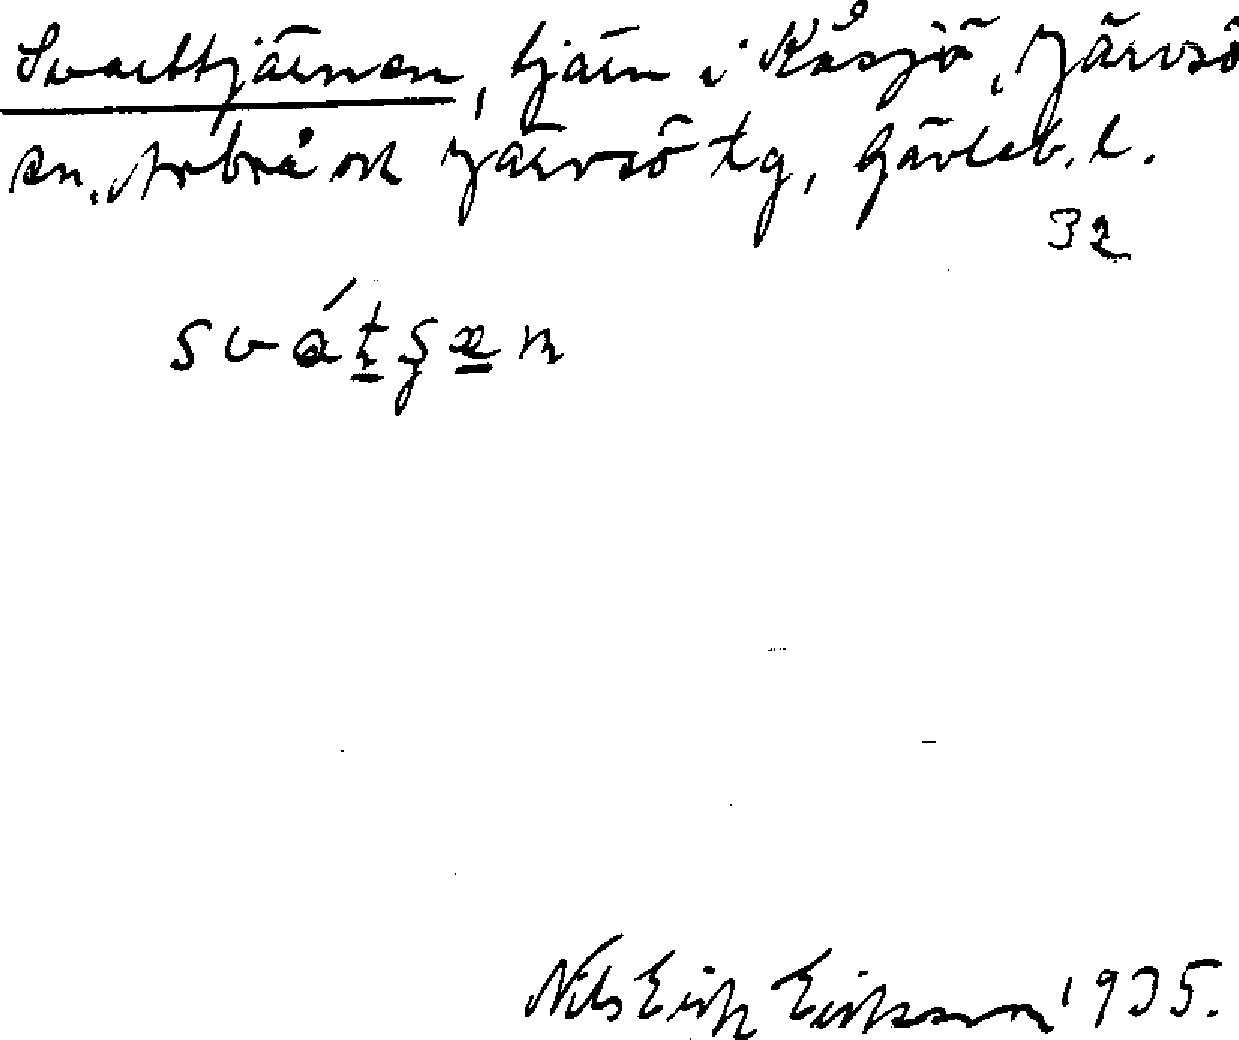 Svarttjärnen, tjärn i Kåsjö, Järvsö
sn. Arbrå och Järvsö tg, Gävleb. l.
32
Nils Erik Eriksson 1935.